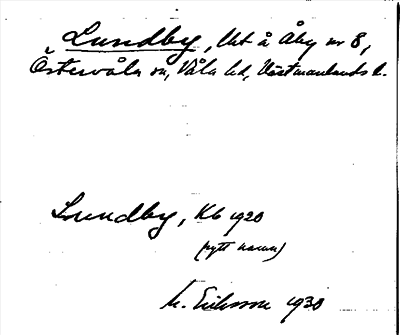 Lundby, lht å Åby nr 8,
Östervåla sn, Våla hd, Västmanlands l.
Lundby, Kb 1920
(nytt namn)
M. Eriksson 1930